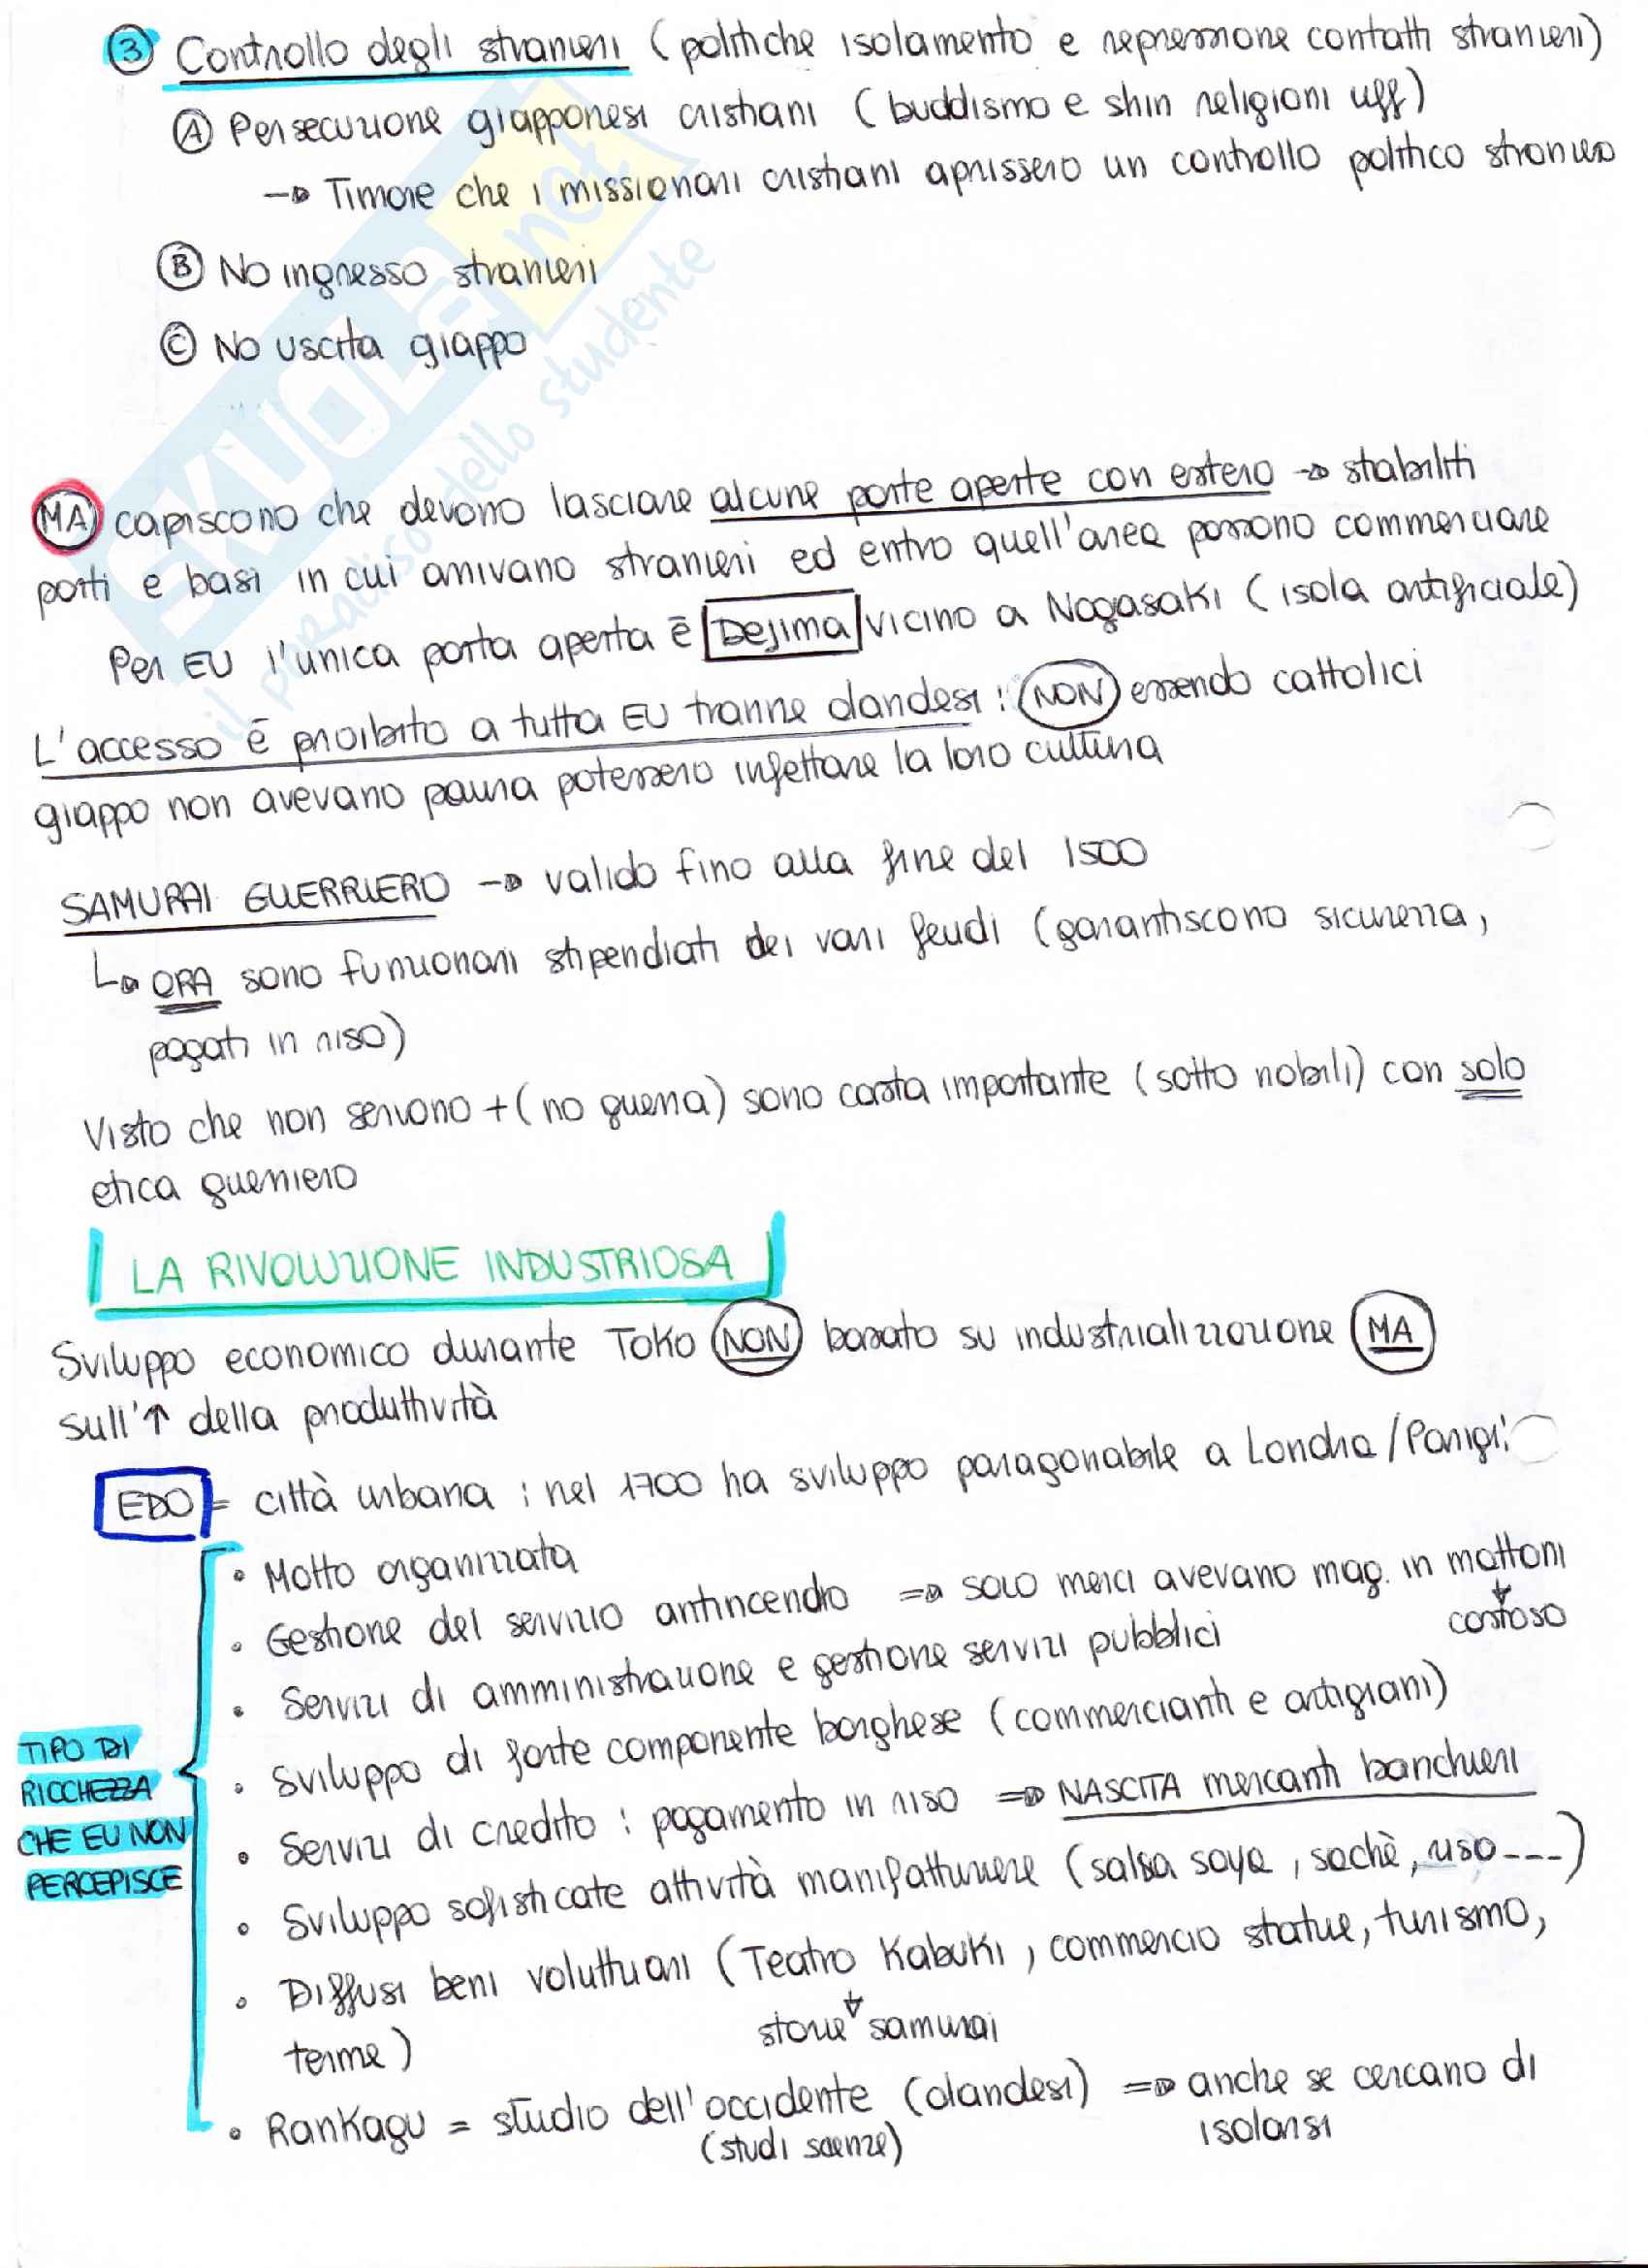 ③ Controllo degli stranieri (politiche isolamento e repressione contatti stranieri)
Ⓐ Persecuzione giapponesi cristiani (buddismo e shin religioni uff)
→ Timore che i missionari cristiani aprissero un controllo politico straniero
Ⓑ No ingresso stranieri
Ⓒ No uscita giappo
MA capiscono che devono lasciare alcune porte aperte con estero → stabiliti
porti e basi in cui arrivano stranieri ed entro quell'area possono commerciare
Per EU l'unica porta aperta è Dejima vicino a Nagasaki (isola artificiale)
L'accesso è proibito a tutta EU tranne olandesi: NON essendo cattolici
giappo non avevano paura potessero infettare la loro cultura
SAMURAI GUERRIERO → valido fino alla fine del 1500
↳ ORA sono funzionari stipendiati dei vari feudi (garantiscono sicurezza,
pagati in riso)
Visto che non servono + (no guerra) sono casta importante (sotto nobili) con solo
etica guerriero
LA RIVOLUZIONE INDUSTRIOSA
Sviluppo economico durante Toko NON basato su industrializzazione MA
sull'↑ della produttività
EDO = città urbana : nel 1700 ha sviluppo paragonabile a Londra/Parigi:
• Molto organizzata
• Gestione del servizio antincendio ⇒ solo merci avevano mag. in mattoni
↓
costoso
• Servizi di amministrazione e gestione servizi pubblici
• Sviluppo di forte componente borghese (commercianti e artigiani)
• Servizi di credito : pagamento in riso ⇒ NASCITA mercanti banchieri
• Sviluppo sofisticate attività manifatturiere (salsa soya, sachè, riso---)
• Diffusi beni voluttuari (Teatro Kabuki, commercio statue, turismo,
↓
storie samurai
terme)
• Rankagu = studio dell'occidente (olandesi) ⇒ anche se cercano di
(studi scienze)
isolarsi
TIPO DI
RICCHEZZA
CHE EU NON
PERCEPISCE
SKUOLA.net
il paradiso dello studente